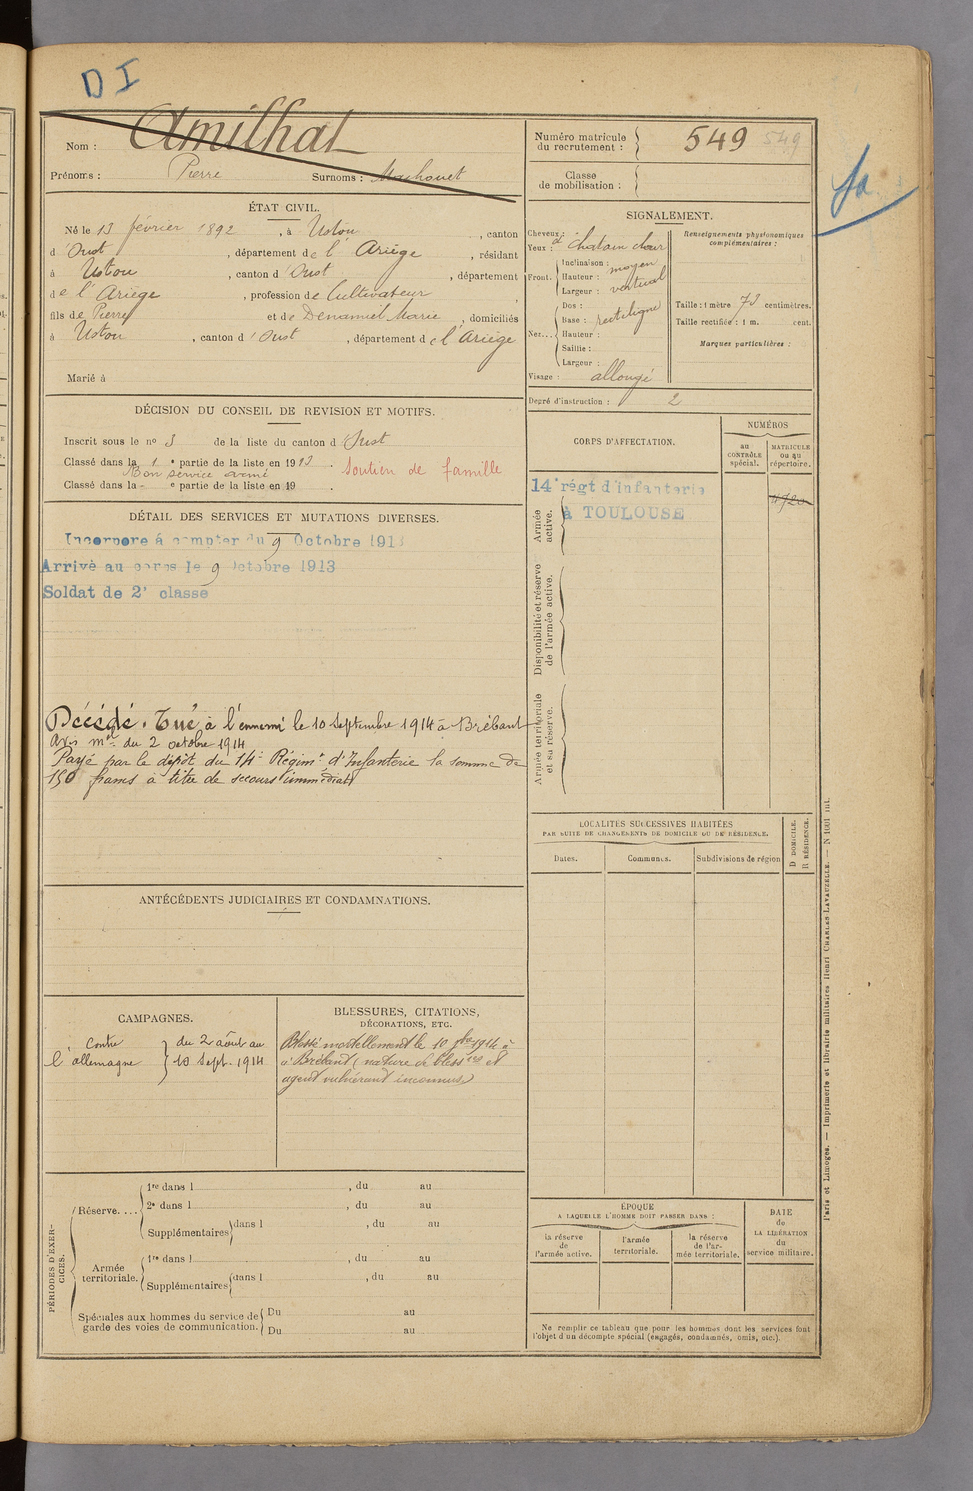 D I
Nom : Amilhat
Prénoms : Pierre Surnoms :
ÉTAT CIVIL.
Né le 13 février 1892, à Ustou, canton
d'Oust, département de l'Ariège, résidant
à Ustou, canton d'Oust, département
de l'Ariège, profession de Cultivateur,
fils de Pierre et de Denamiel Marie, domiciliés
à Ustou, canton d'Oust, département de l'Ariège
Marié à
DÉCISION DU CONSEIL DE REVISION ET MOTIFS.
Inscrit sous le nº 3 de la liste du canton d'Oust
Classé dans la 1e partie de la liste en 1913. Soutien de famille
Bon service armé
Classé dans la - e partie de la liste en 19 .
DÉTAIL DES SERVICES ET MUTATIONS DIVERSES.
Incorporé à compter du 9 Octobre 1913
Arrivé au corps le 9 Octobre 1913
Soldat de 2e classe
Décédé. Tué à l'ennemi le 10 Septembre 1914 à Brébant
Avis mel du 2 octobre 1914
Payé par le dépôt du 14e Régimt d'Infanterie la somme de
150 francs à titre de secours immédiat
ANTÉCÉDENTS JUDICIAIRES ET CONDAMNATIONS.
CAMPAGNES.
Contre l'allemagne } du 2 août au
10 Sept. 1914
BLESSURES, CITATIONS,
DÉCORATIONS, ETC.
Blessé mortellement le 10 7bre 1914 à
à Brébant (nature de blessres et
agent vulnérant inconnus)
PÉRIODES D'EXERCICES.
Réserve....
1re dans l , du au
2e dans l , du au
Supplémentaires dans l , du au
Armée territoriale.
1re dans l , du au
Supplémentaires dans l , du au
Spéciales aux hommes du service de
garde des voies de communication.
Du au
Du au
Numéro matricule
du recrutement : 549 549
Classe
de mobilisation :
SIGNALEMENT.
Cheveux : et
Yeux : chatain clair
Front.
Inclinaison : moyen
Hauteur :
Largeur : vertical
Nez...
Dos :
Base : rectiligne
Hauteur :
Saillie :
Largeur :
Visage : allongé
Renseignements physionomiques
complémentaires :
Taille : 1 mètre 73 centimètres.
Taille rectifiée : 1 m. cent.
Marques particulières :
Degré d'instruction : 2
CORPS D'AFFECTATION.
NUMÉROS
au
CONTRÔLE
spécial.
MATRICULE
ou au
répertoire.
14e régt d'infanterie
à TOULOUSE
4720
Armée
active.
Disponibilité et réserve
de l'armée active.
Armée territoriale
et sa réserve.
LOCALITÉS SUCCESSIVES HABITÉES
PAR SUITE DE CHANGEMENTS DE DOMICILE OU DE RÉSIDENCE.
Dates.
Communes.
Subdivisions de région
D DOMICILE.
R RÉSIDENCE.
ÉPOQUE
A LAQUELLE L'HOMME DOIT PASSER DANS :
la réserve
de
l'armée active.
l'armée
territoriale.
la réserve
de l'ar-
mée territoriale.
DATE
de
LA LIBÉRATION
du
service militaire.
Ne remplir ce tableau que pour les hommes dont les services font
l'objet d'un décompte spécial (engagés, condamnés, omis, etc.).
Paris et Limoges. — Imprimerie et librairie militaires Henri CHARLES-LAVAUZELLE. — N 1001 int.